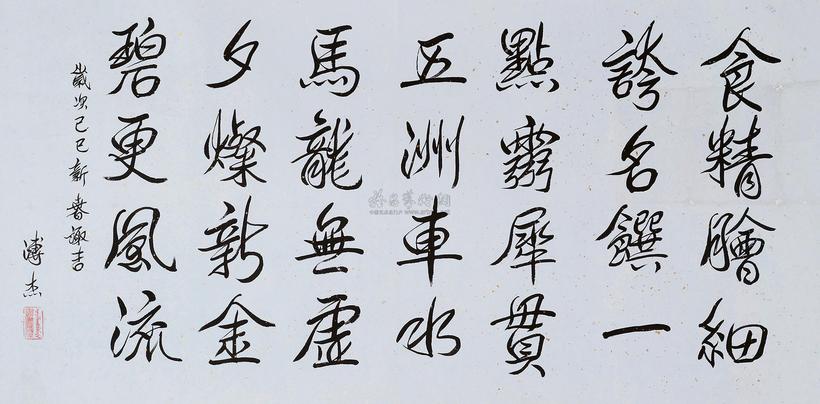 食精膾細
誇名饌一
點靈犀貫
五洲車水
馬龍無虛
夕燦新金
碧更風流
歲次己巳新春諏吉
溥杰